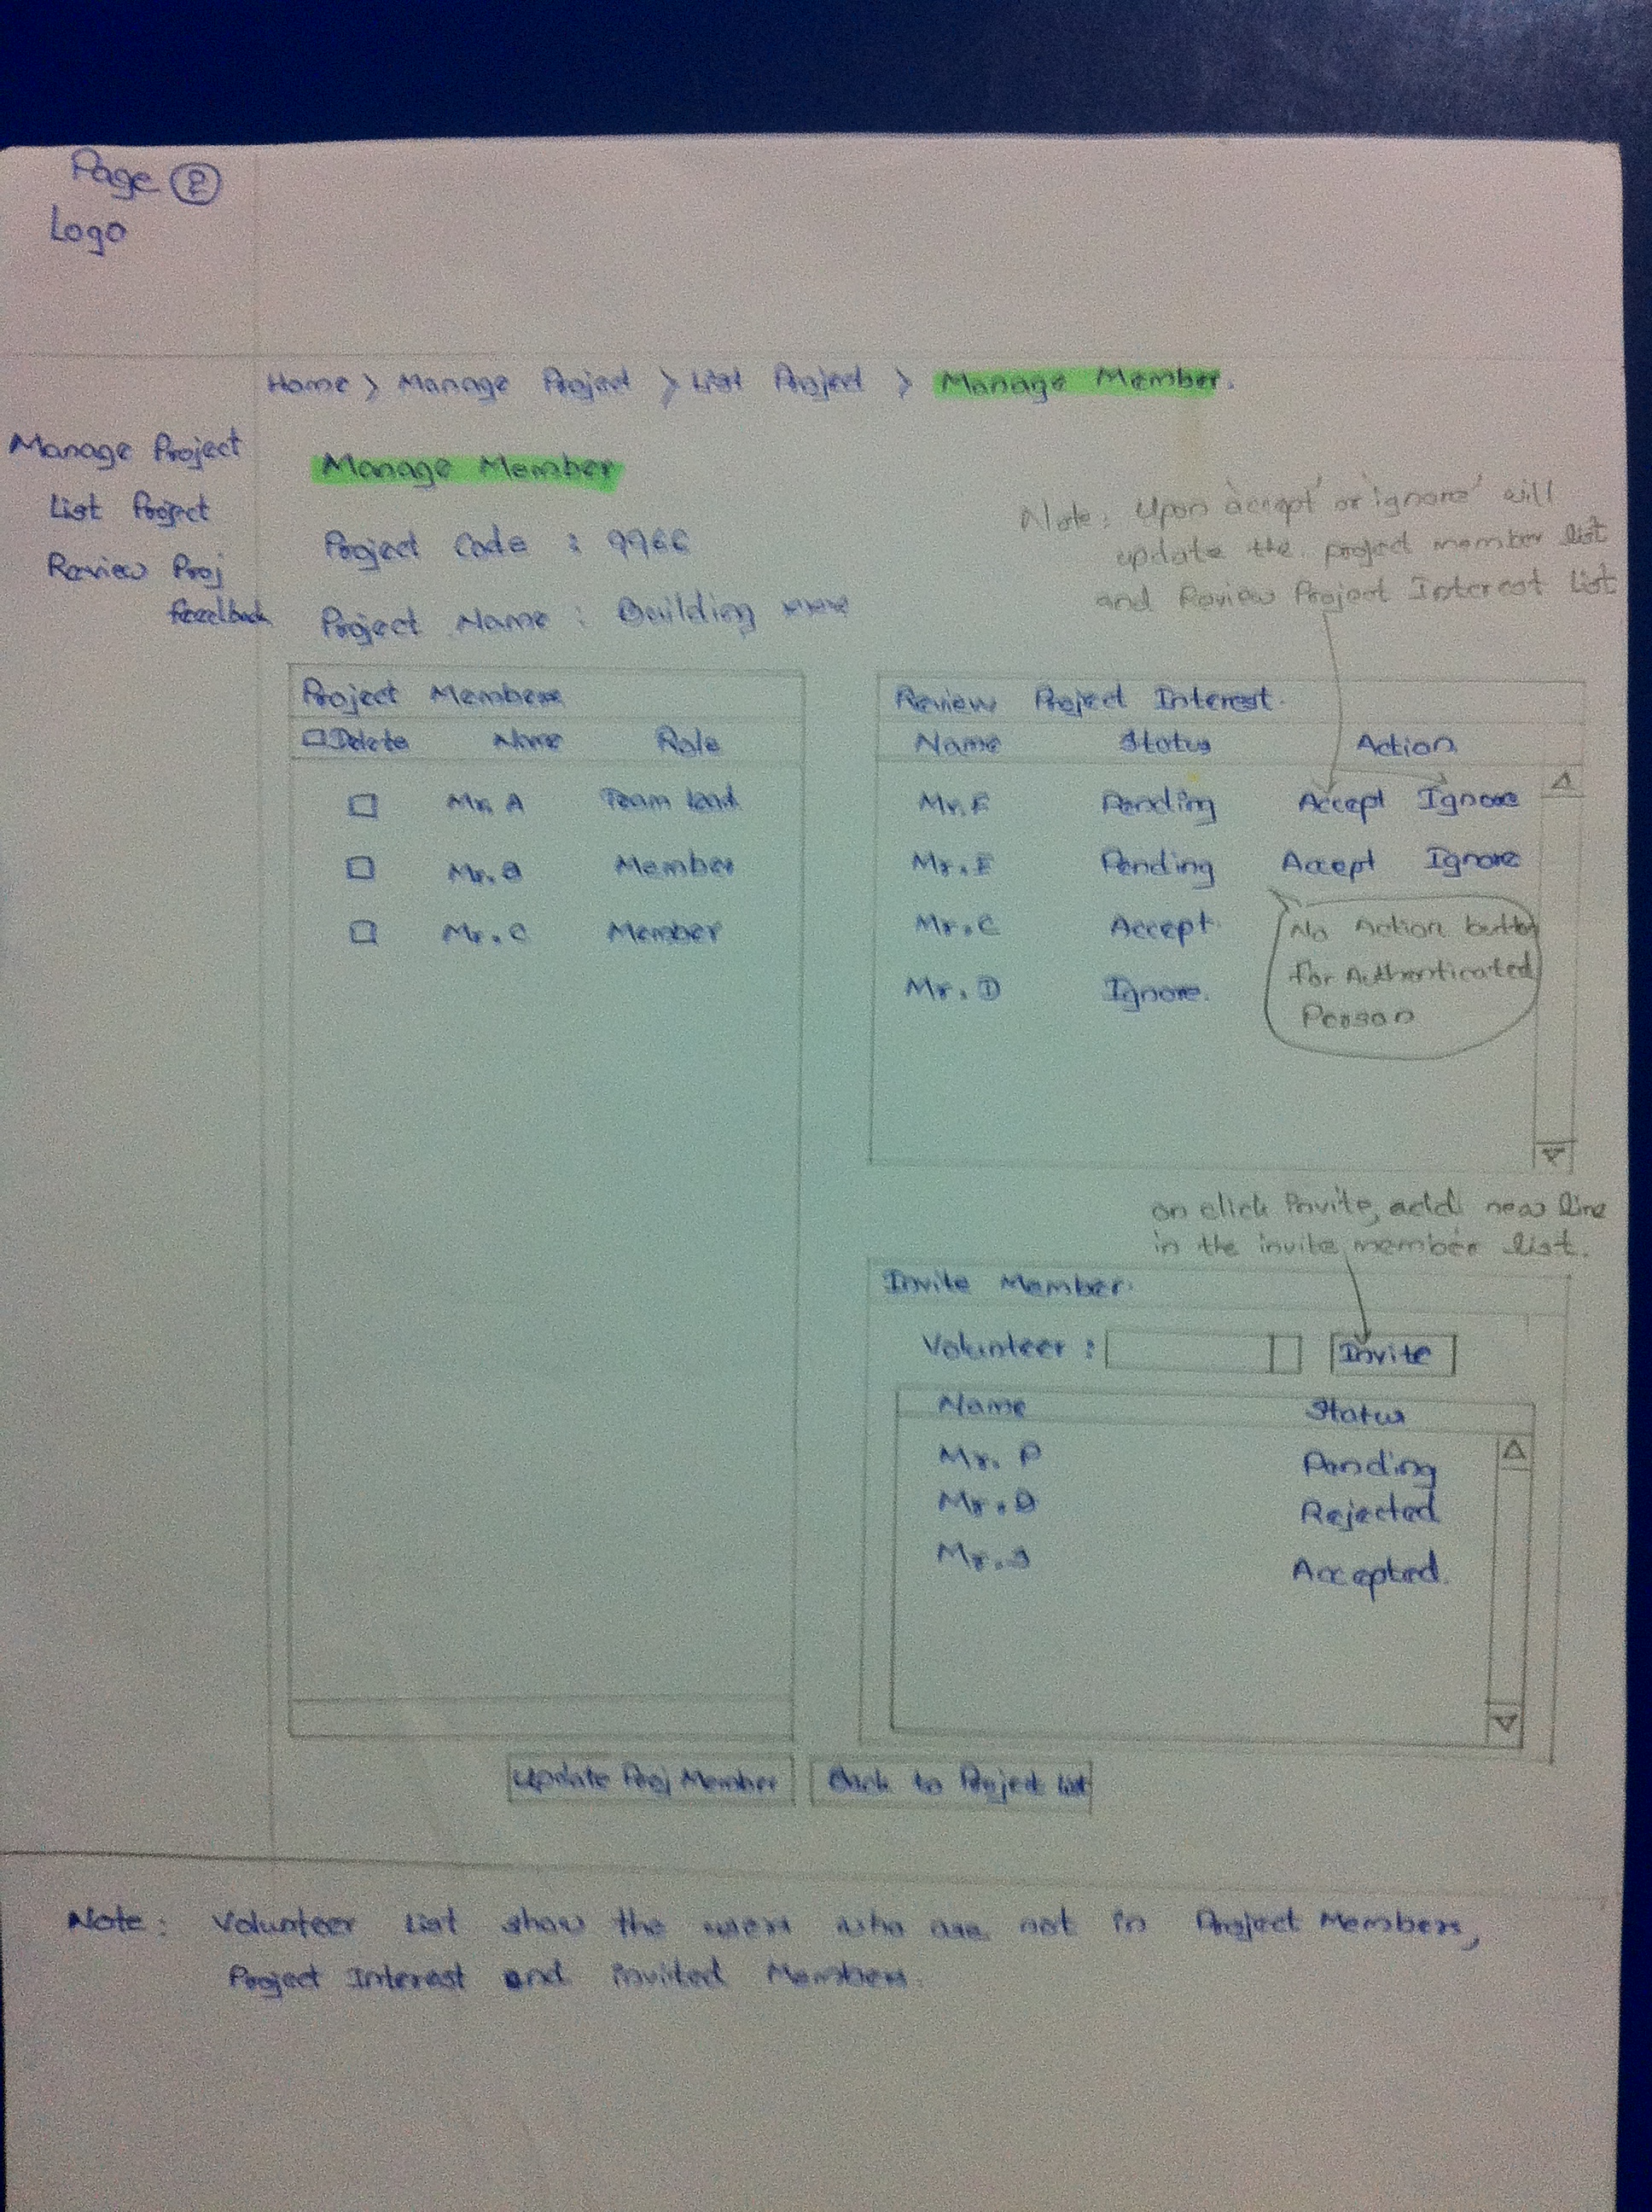 Page 2
Logo
Home > Manage Project > List Project > Manage Member.
Manage Project
List Project
Review Proj
feedback
Manage Member
Project Code : 9966
Project Name : Building xxxx
Note: Upon 'accept' or 'ignore' will
update the project member list
and Review Project Interest List
Project Members
Delete Name Role
Mr. A Team lead
Mr. B Member
Mr. C Member
Review Project Interest.
Name Status Action
Mr. F Pending Accept Ignore
Mr. E Pending Accept Ignore
Mr. C Accept.
Mr. D Ignore.
No Action button
for Authenticated
Person
on click invite, add new line
in the invite member list.
Invite Member.
Volunteer : Invite
Name Status
Mr. P Pending
Mr. D Rejected
Mr. Accepted.
Update Proj Member Back to Project list
Note: Volunteer List show the users who are not in Project Members,
Project Interest and invited Members.